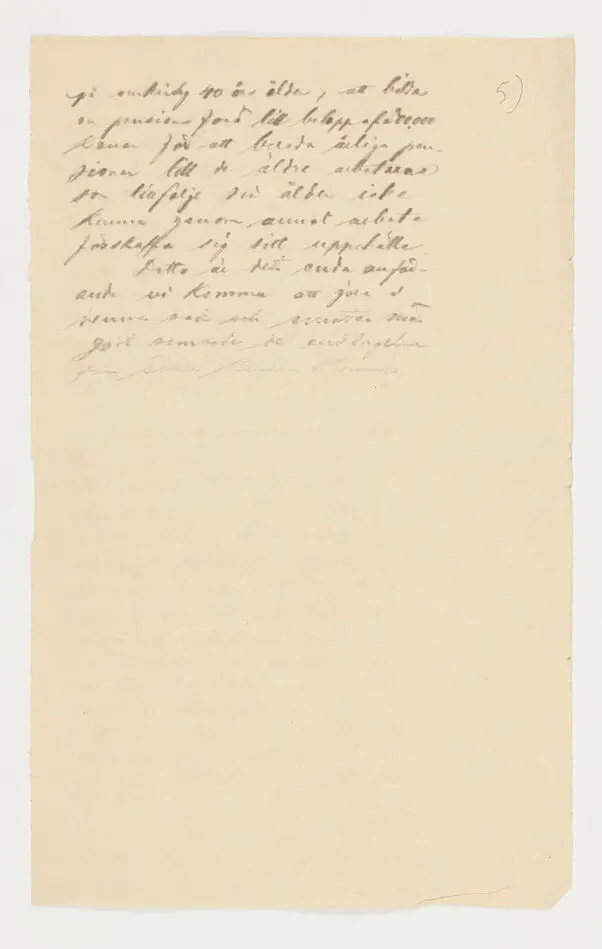 5)
på omkring 40 års ålder, att bilda
en pensions fond till belopp af
Kronor för att bereda årliga pen-
sioner till de äldre arbetarne
som till följe sin ålder icke
kunna genom annat arbete
förskaffa sig sitt uppehälle.
Detta är det enda anför-
ande vi komma att göra i
denna sak och
godt